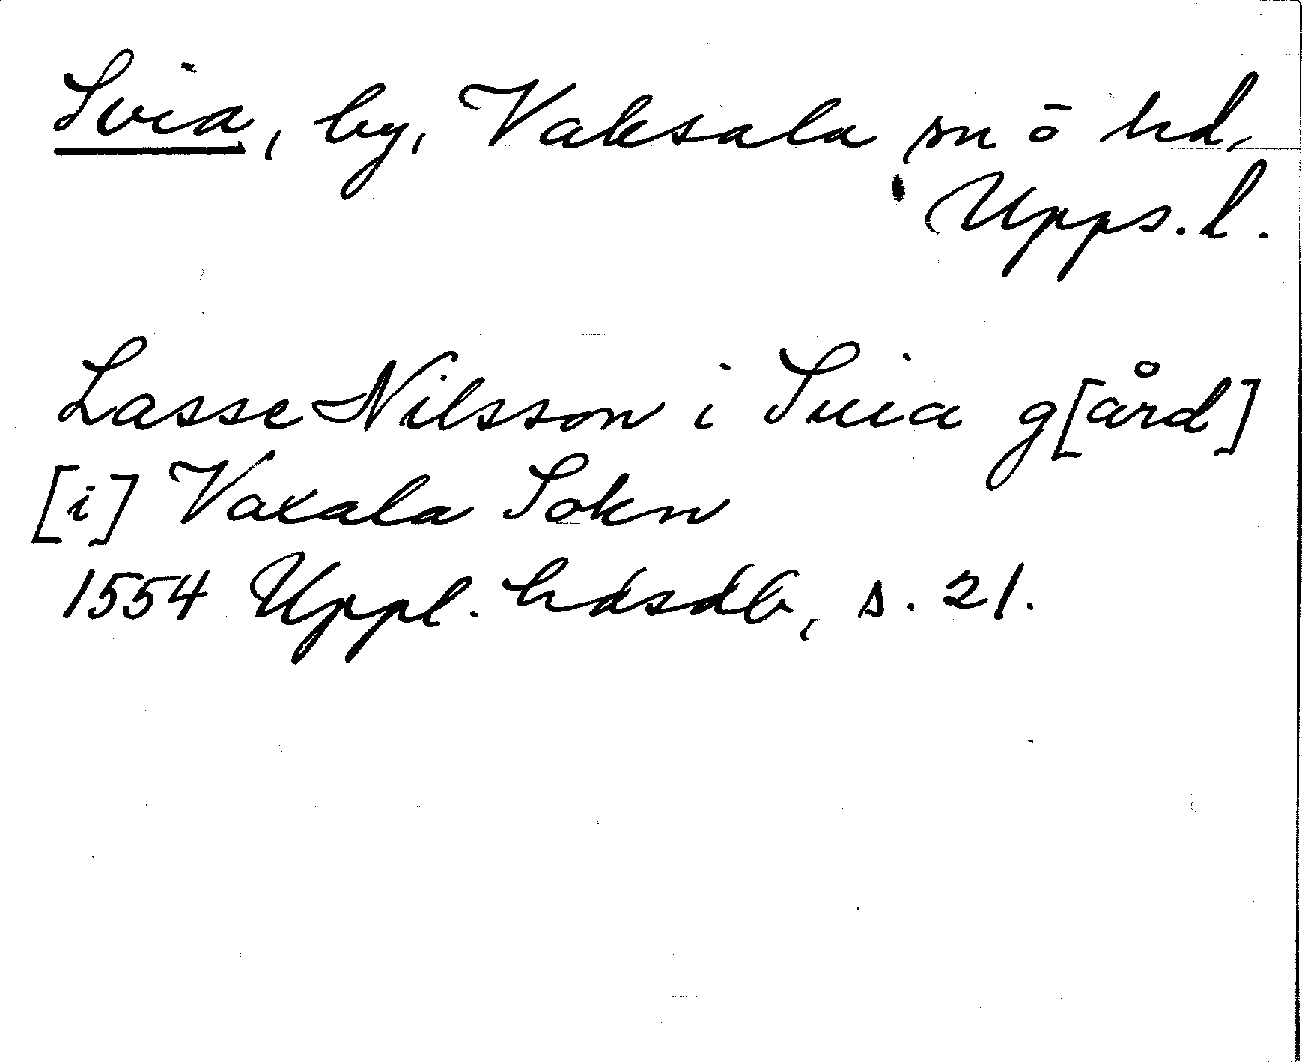 Svia, by, Vaksala sn o hd,
Upps. l.
Lasse Nilsson i Suia g[ård]
[i] Vaxala Sokn
1554 Uppl. hdsdb, s. 21.